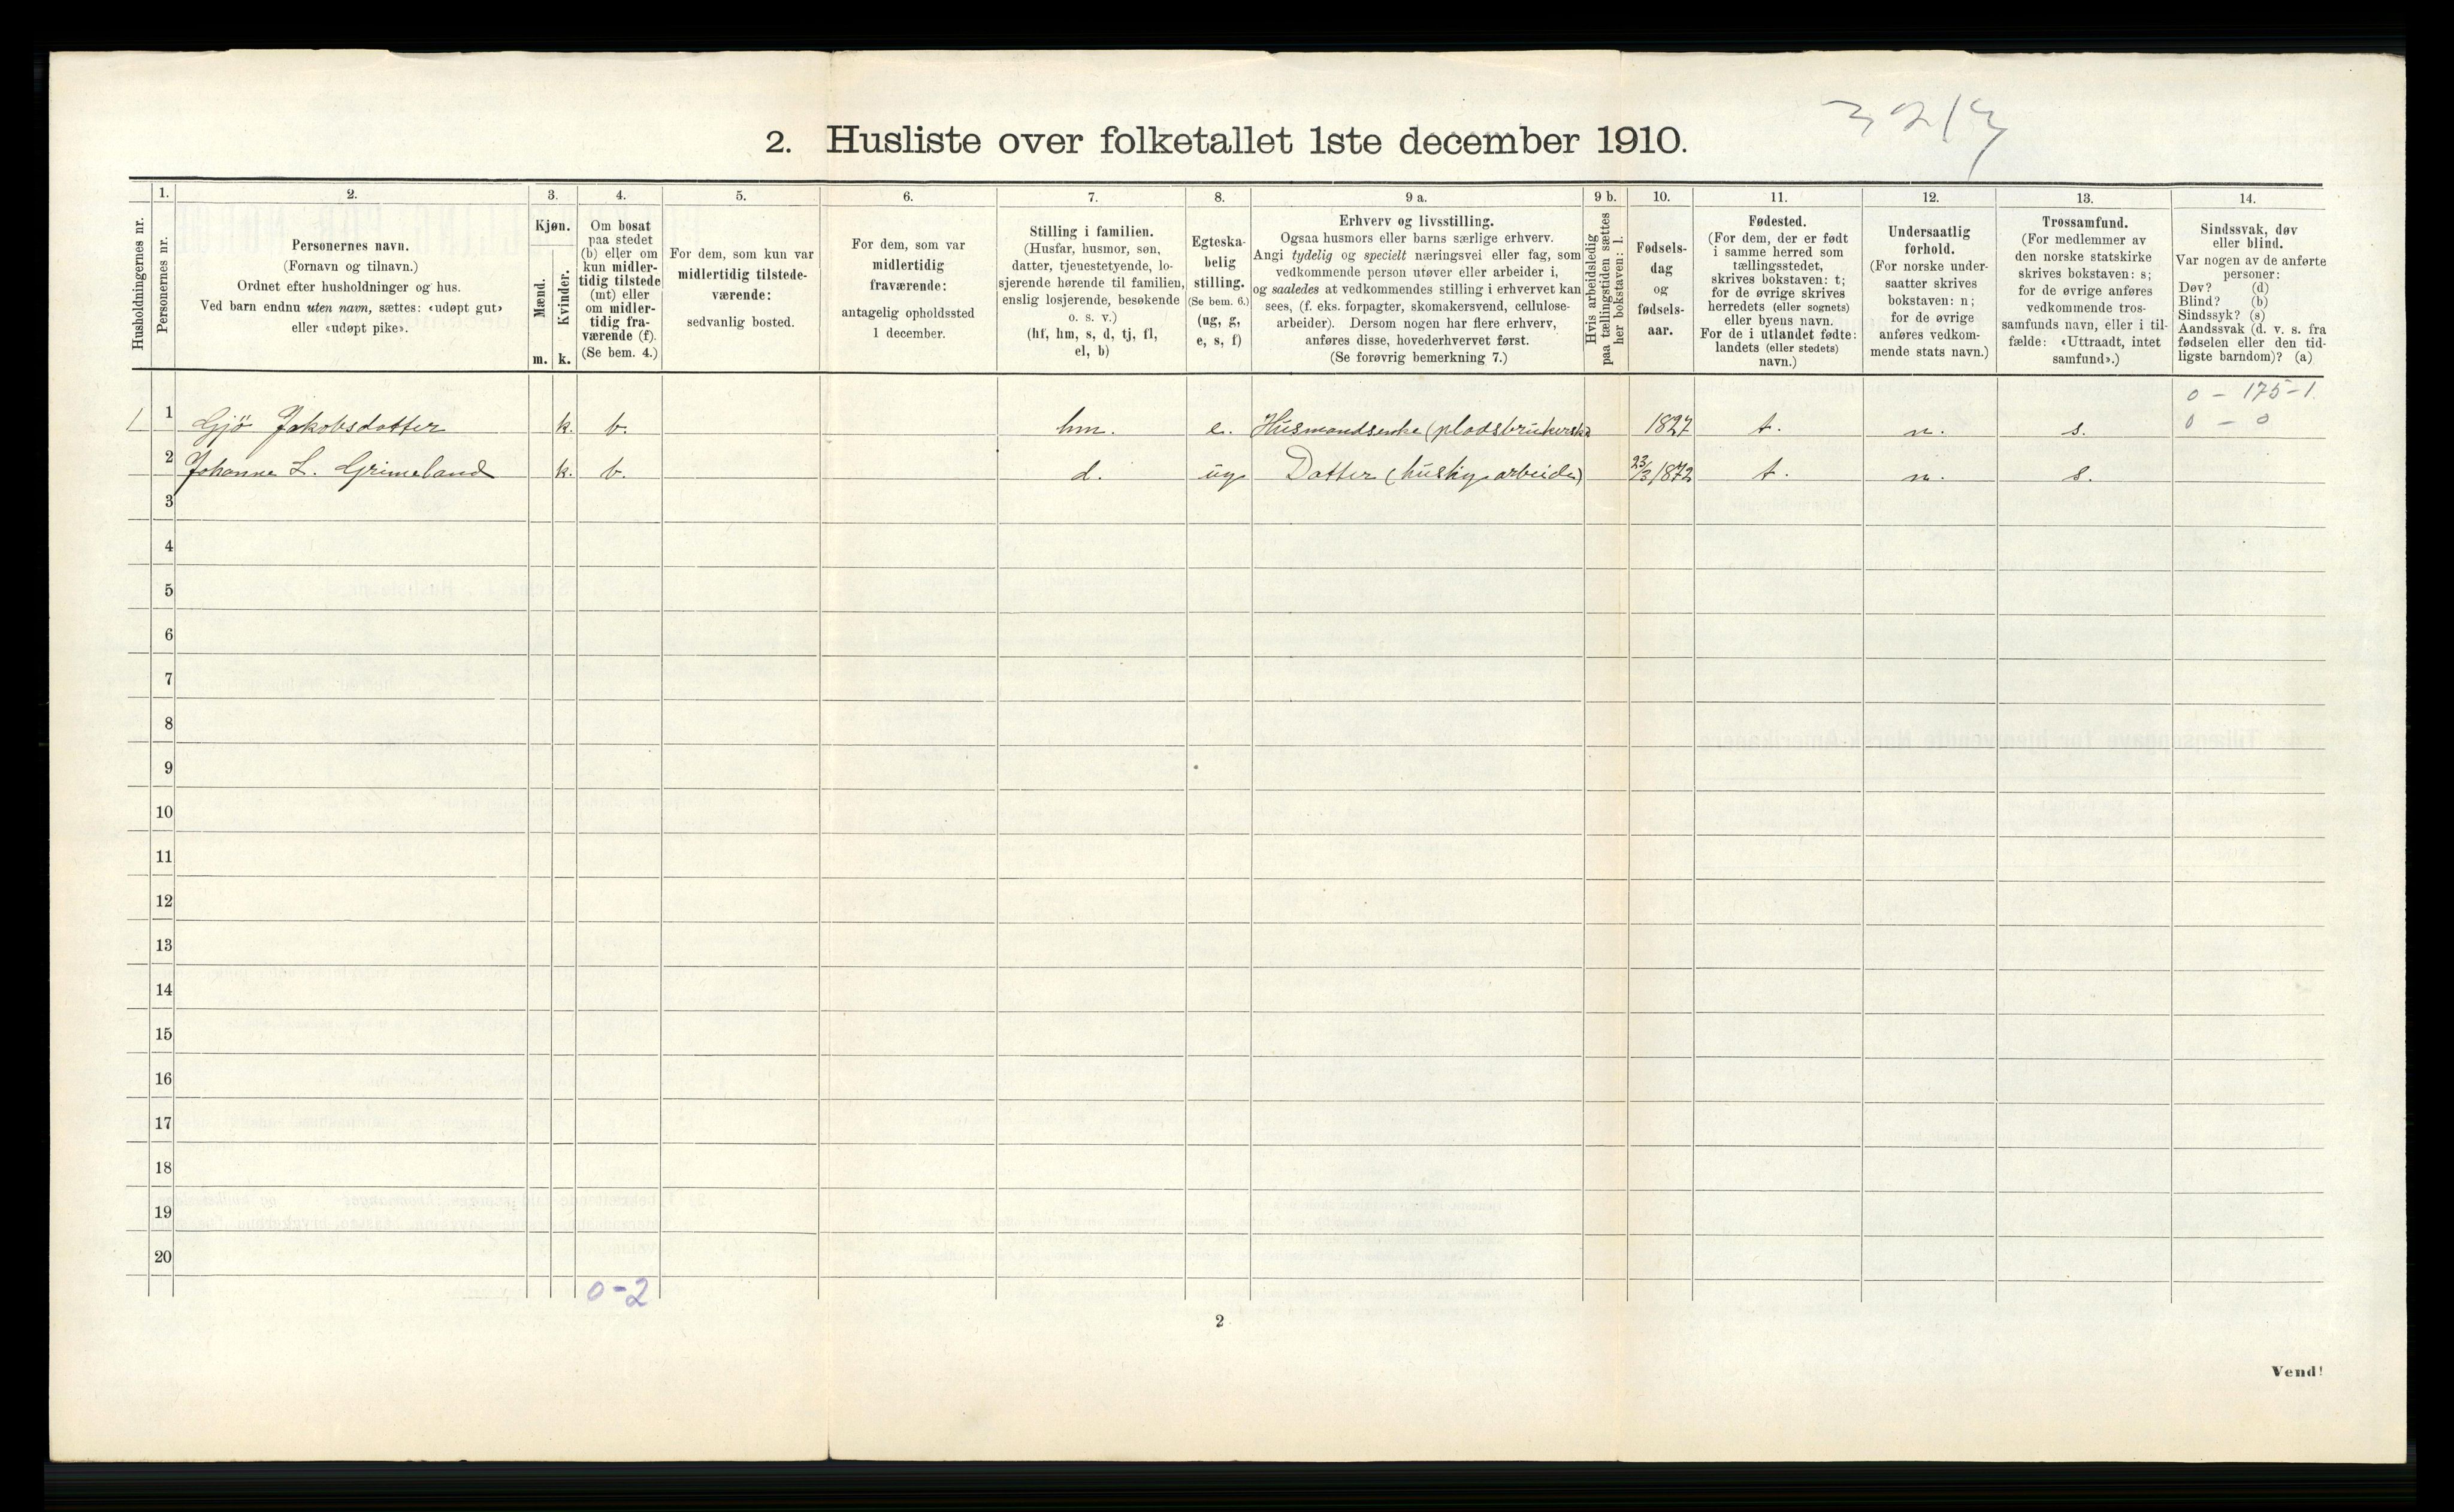 3213
2. Husliste over folketallet 1ste december 1910.
Husholdningernes nr.
1.
Personernes nr.
2.
Personernes navn.
(Fornavn og tilnavn.)
Ordnet efter husholdninger og hus.
Ved barn endnu uten navn, sættes: «udøpt gut»
eller «udøpt pike».
3.
Kjøn.
Mænd.
Kvinder.
m. k.
4.
Om bosat
paa stedet
(b) eller om
kun midler-
tidig tilstede
(mt) eller
om midler-
tidig fra-
værende (f).
(Se bem. 4.)
5.
For dem, som kun var
midlertidig tilstede-
værende:
sedvanlig bosted.
6.
For dem, som var
midlertidig
fraværende:
antagelig opholdssted
1 december.
7.
Stilling i familien.
(Husfar, husmor, søn,
datter, tjenestetyende, lo-
sjerende hørende til familien,
enslig losjerende, besøkende
o. s. v.)
(hf, hm, s, d, tj, fl,
el, b)
8.
Egteska-
belig
stilling.
(Se bem. 6.)
(ug, g,
e, s, f)
9 a.
Erhverv og livsstilling.
Ogsaa husmors eller barns særlige erhverv.
Angi tydelig og specielt næringsvei eller fag, som
vedkommende person utøver eller arbeider i,
og saaledes at vedkommendes stilling i erhvervet kan
sees, (f. eks. forpagter, skomakersvend, cellulose-
arbeider). Dersom nogen har flere erhverv,
anføres disse, hovederhvervet først.
(Se forøvrig bemerkning 7.)
9 b.
Hvis arbeidsledig
paa tællingstiden sættes
her bokstaven: l.
10.
Fødsels-
dag
og
fødsels-
aar.
11.
Fødested.
(For dem, der er født
i samme herred som
tællingsstedet,
skrives bokstaven: t;
for de øvrige skrives
herredets (eller sognets)
eller byens navn.
For de i utlandet fødte:
landets (eller stedets)
navn.)
12.
Undersaatlig
forhold.
(For norske under-
saatter skrives
bokstaven: n;
for de øvrige
anføres vedkom-
mende stats navn.)
13.
Trossamfund.
(For medlemmer av
den norske statskirke
skrives bokstaven: s;
for de øvrige anføres
vedkommende tros-
samfunds navn, eller i til-
fælde: «Uttraadt, intet
samfund».)
14.
Sindssvak, døv
eller blind.
Var nogen av de anførte
personer:
Døv? (d)
Blind? (b)
Sindssyk? (s)
Aandssvak (d. v. s. fra
fødselen eller den tid-
ligste barndom)? (a)
0 - 175-1
0 - 0
1 1 Gjö Jakobsdotter k. b. hm. e. Husmandsenke (pladsbrukerske 1827 t. n. s.
2 Johanne L. Grimeland k. b. d. ug Datter (huslig arbeide) 23/3 1872 t. n. s.
3
4
5
6
7
8
9
10
11
12
13
14
15
16
17
18
19
20
0-2
2
Vend!